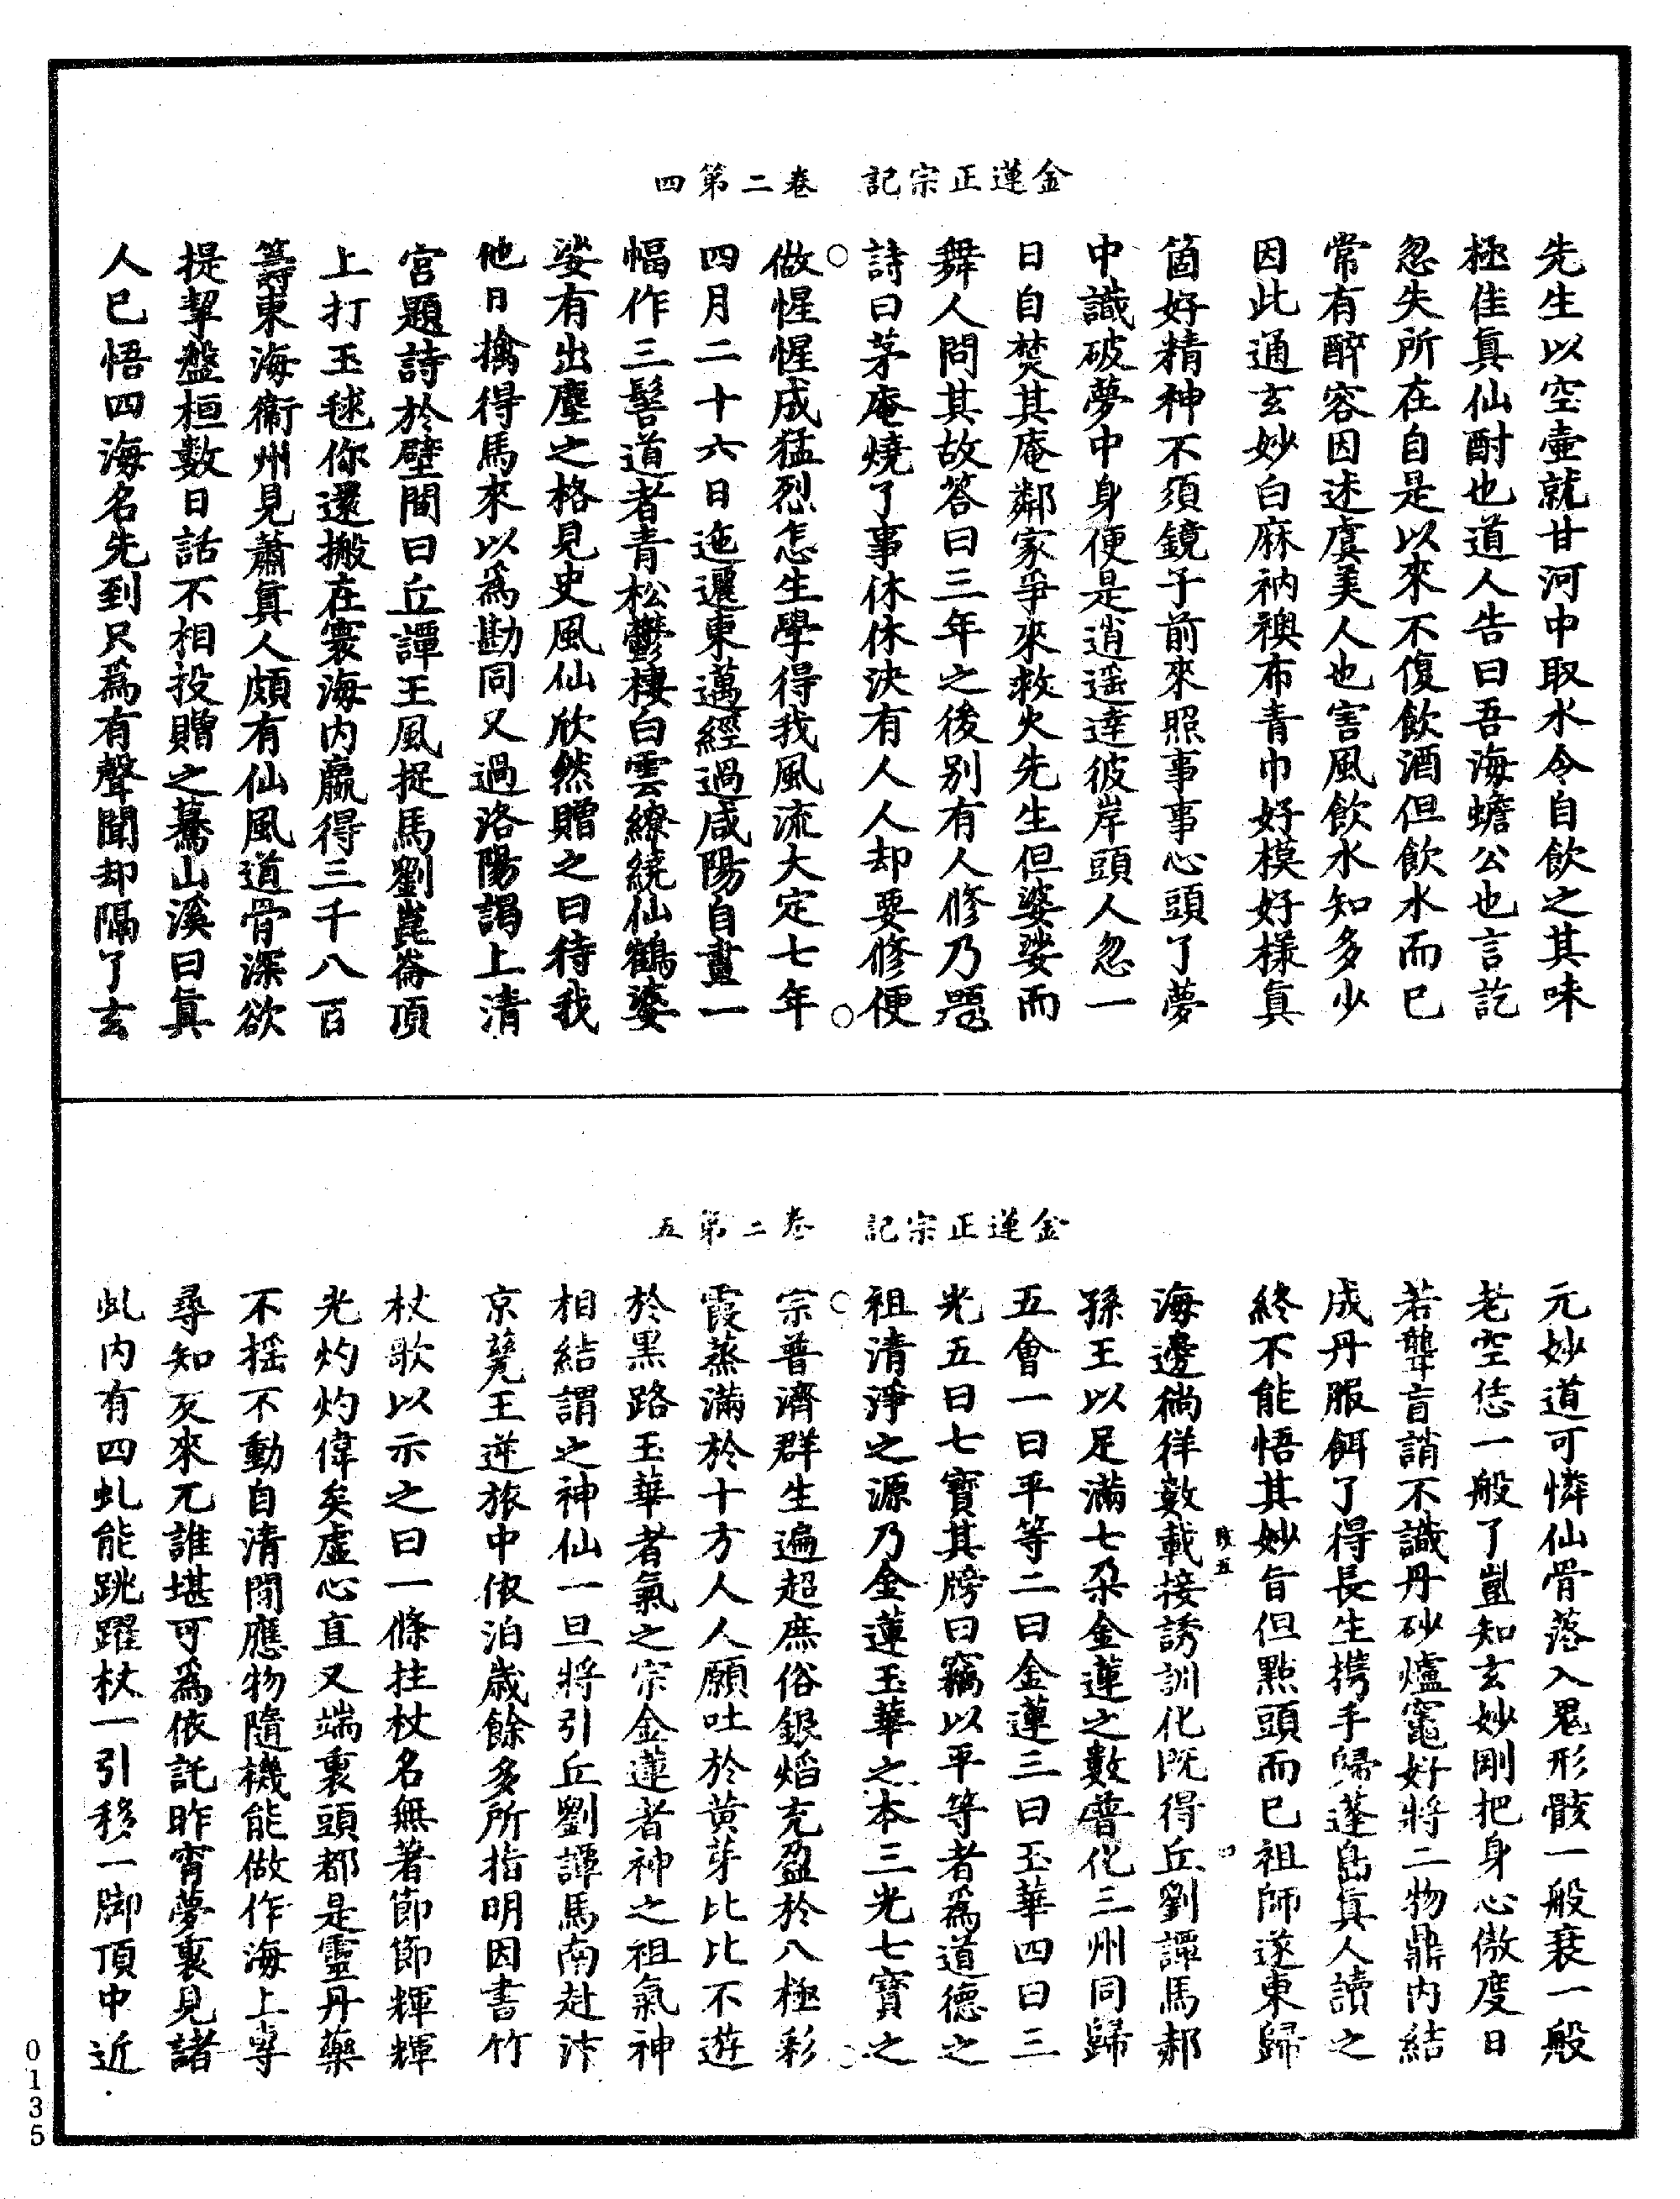 金蓮正宗記　卷二第四
先生以空壺就甘河中取水令自飲之其味
極佳真仙酎也道人告曰吾海蟾公也言訖
忽失所在自是以來不復飲酒但飲水而已
常有醉容因述虞美人也害風飲水知多少
因此通玄妙白麻衲襖布青巾好模好樣真
箇好精神不須鏡子前來照事事心頭了夢
中識破夢中身便是逍遥達彼岸頭人忽一
日自焚其庵鄰家爭來救火先生但婆娑而
舞人問其故答曰三年之後别有人修乃題
詩曰茅庵燒了事休休決有人人却要修便
做惺惺成猛烈怎生學得我風流大定七年
四月二十六日迤邐東邁經過咸陽自畫一
幅作三髻道者青松鬱棲白雲繚繞仙鶴婆
娑有出塵之格見史風仙欣然贈之曰待我
他日擒得馬來以爲勘同又過洛陽謁上清
宮題詩於壁間曰丘譚王風捉馬劉崑崙頂
上打玉毬你還搬在寰海内贏得三千八百
籌東海衞州見蕭真人頗有仙風道骨深欲
提挈盤桓數日話不相投贈之驀山溪曰真
人已悟四海名先到只爲有聲聞却隔了玄
金蓮正宗記　卷二第五
元妙道可憐仙骨落入鬼形骸一般衰一般
老空恁一般了豈知玄妙剛把身心傲度日
若聾盲誚不識丹砂爐竈好將二物鼎内結
成丹服餌了得長生携手歸蓬島真人讀之
終不能悟其妙旨但點頭而已祖師遂東歸
海邊徜徉數載接誘訓化既得丘劉譚馬郝
孫王以足滿七朶金蓮之數普化三州同歸
五會一曰平等二曰金蓮三曰玉華四曰三
光五曰七寶其牓曰竊以平等者爲道德之
祖清淨之源乃金蓮玉華之本三光七寶之
宗普濟群生遍超庶俗銀熖充盈於八極彩
霞蒸滿於十方人人願吐於黄芽比比不遊
於黒路玉華者氣之宗金蓮者神之祖氣神
相結謂之神仙一旦將引丘劉譚馬南赴汴
京甃王逆旅中依泊歲餘多所指明因書竹
杖歌以示之曰一條拄杖名無著節節輝輝
光灼灼偉矣虚心直又端裏頭都是靈丹藥
不揺不動自清閒應物隨機能做作海上專
尋知友來兀誰堪可爲依託昨宵夢裏見諸
虬内有四虬能跳躍杖一引移一脚頂中近
0135